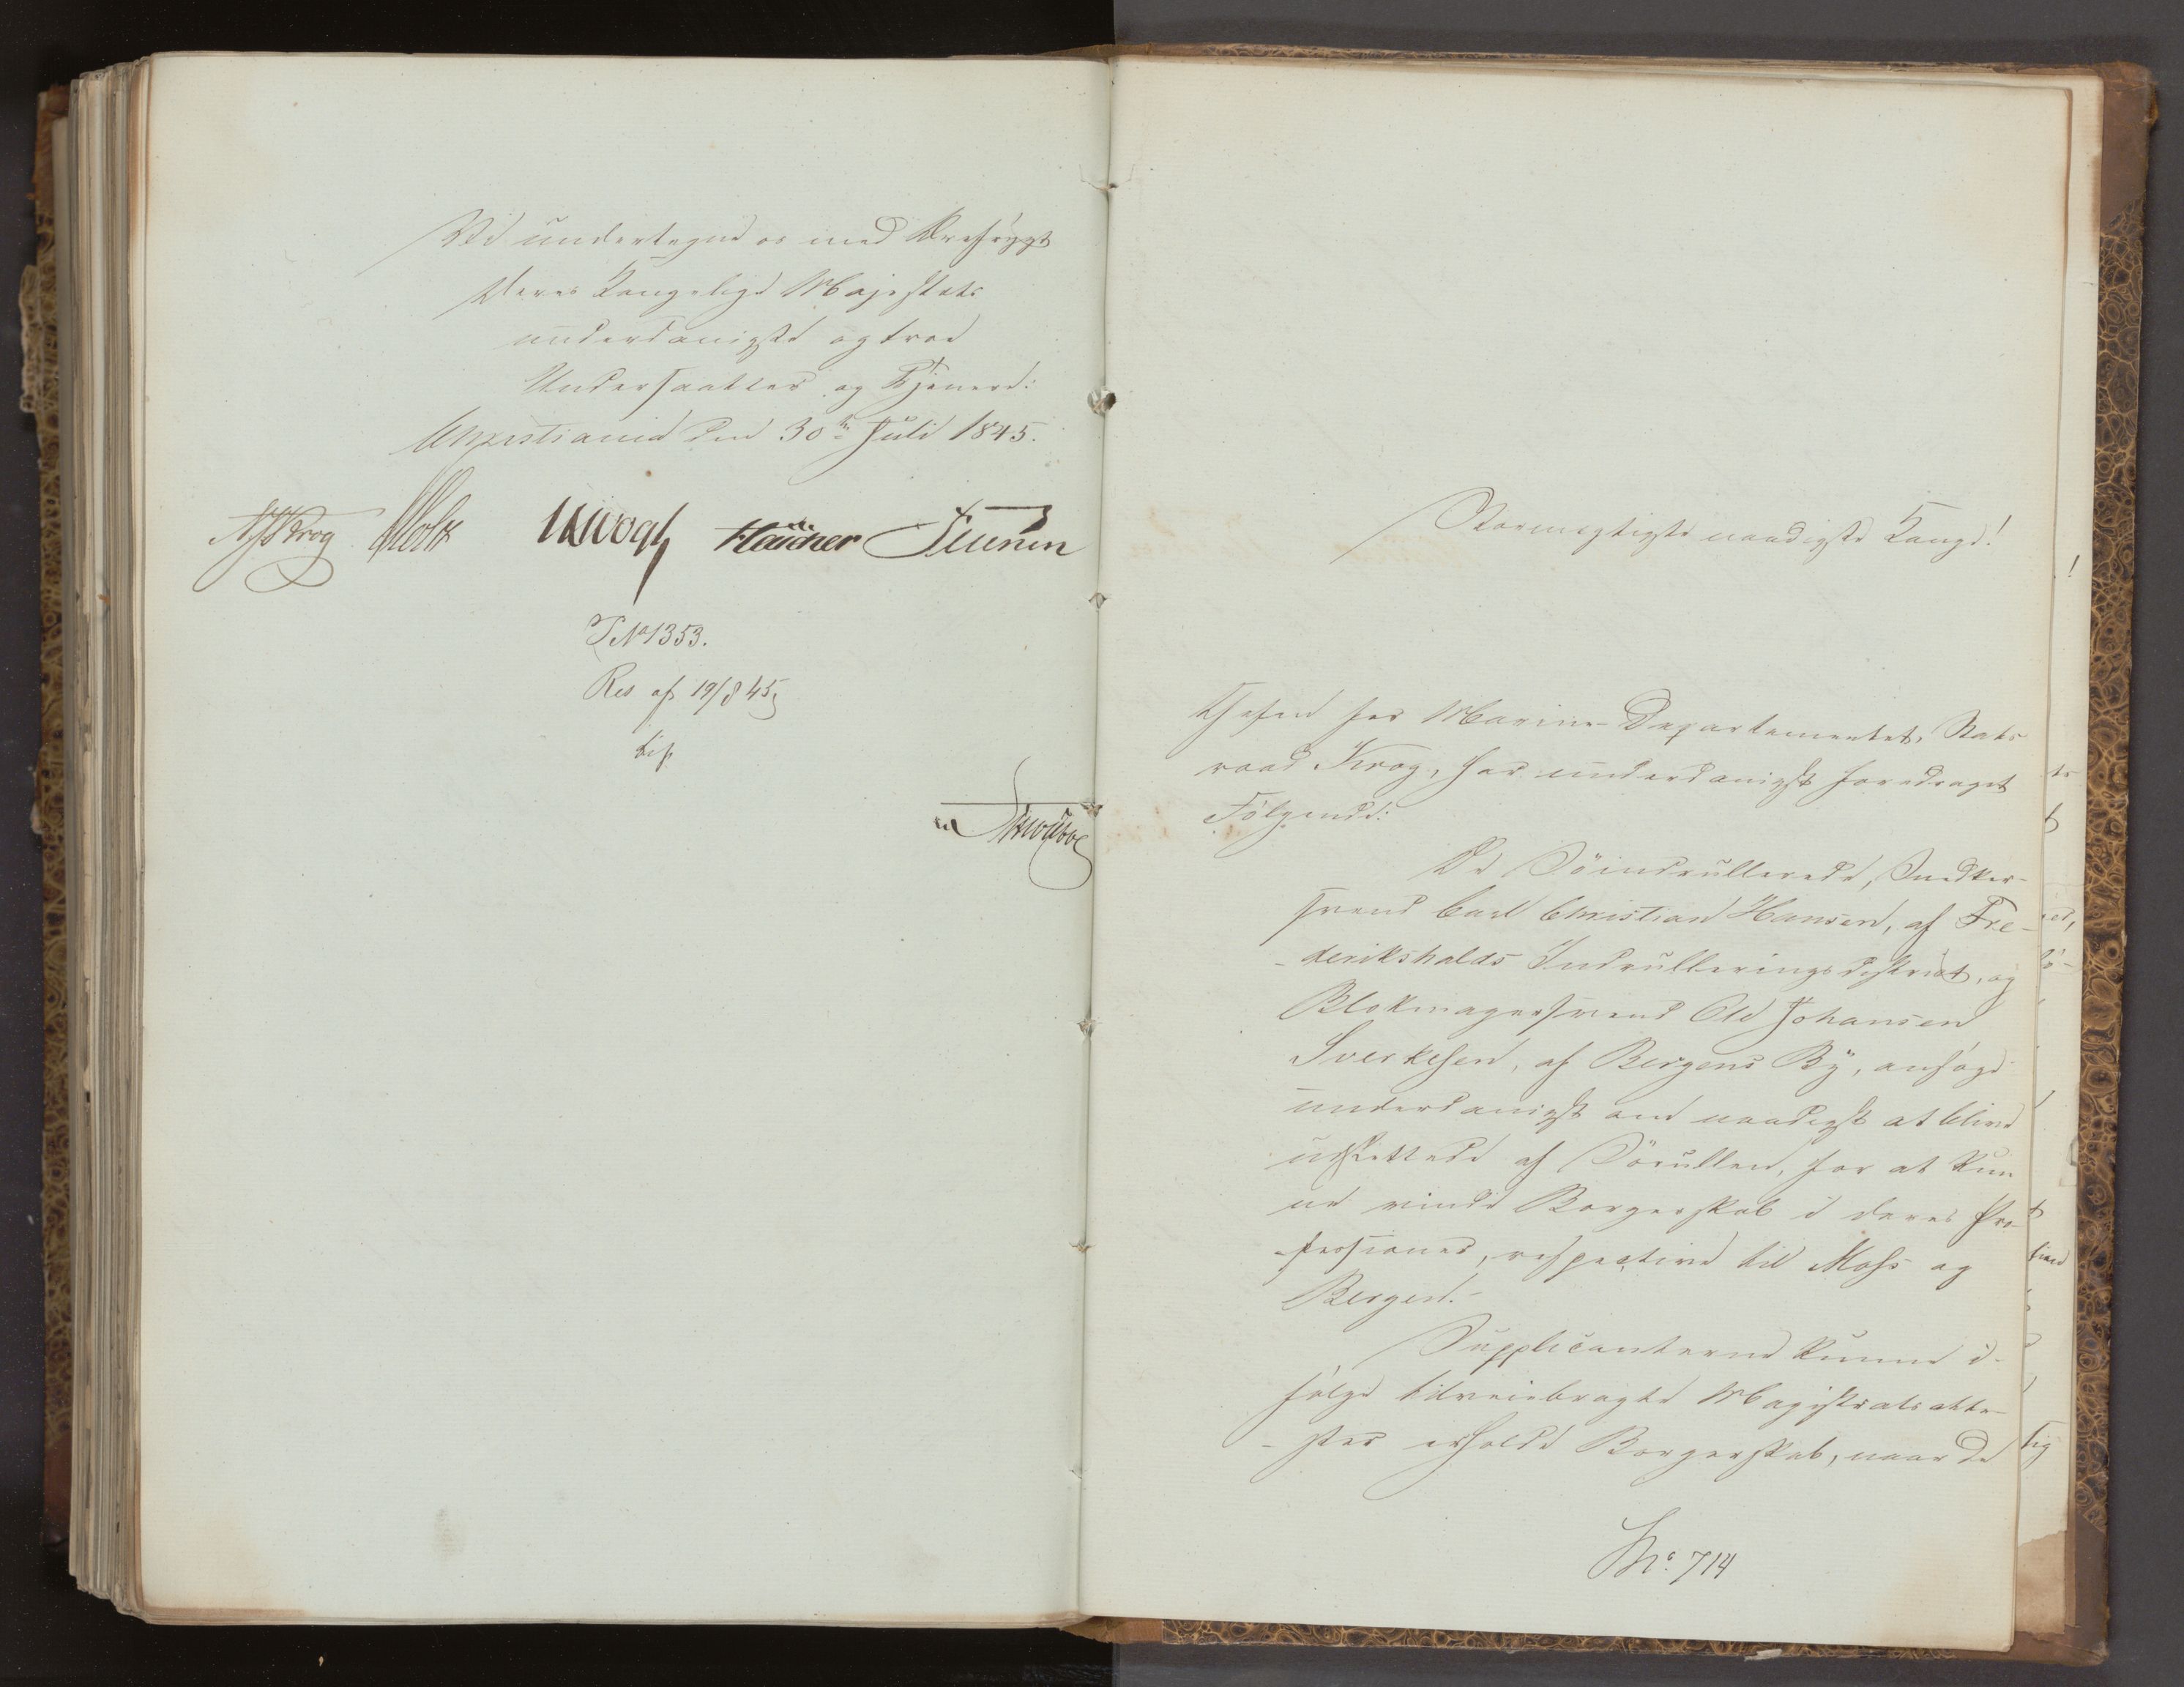 Vi undertegne os med Ærefrygt
Deres Kongelige Majestæts
underdanigste og troe
Undersaatter og Tjenere:
Christiania den 30te Juli 1845.
Krog Holst Vogt
P. No 1353.
Res af 19/8 45
Stormægtigste naadigste Konge!
Chefen for Marine-Departementet, Stats-
raad Krog, har underdanigst foredraget
Følgende:
De Söindrullerede, Snedker-
svend Carl Christian Hansen, af Fre-
-derikshalds Indrulleringsdistrict, og
Blokmagersvend Ole Johansen
Sverkesen, af Bergens By, ansøge
underdanigst om naadigst at blive
udslettede af Sörullen, for at kun-
ne vinde Borgerskab i deres Pro-
-fessioner, respective til Moss og
Bergen.-
Supplicanterne kunne i-
følge tilveiebragte Magistratsatte-
-ster erholde Borgerskab, naar de
No. 714